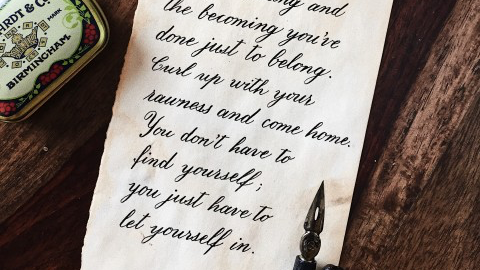 and
the becoming you've
done just to belong.
Curl up with your
rawness and come home.
You don't have to
find yourself;
you just have to
let yourself in.
& CO.
MARK
BIRMINGHAM